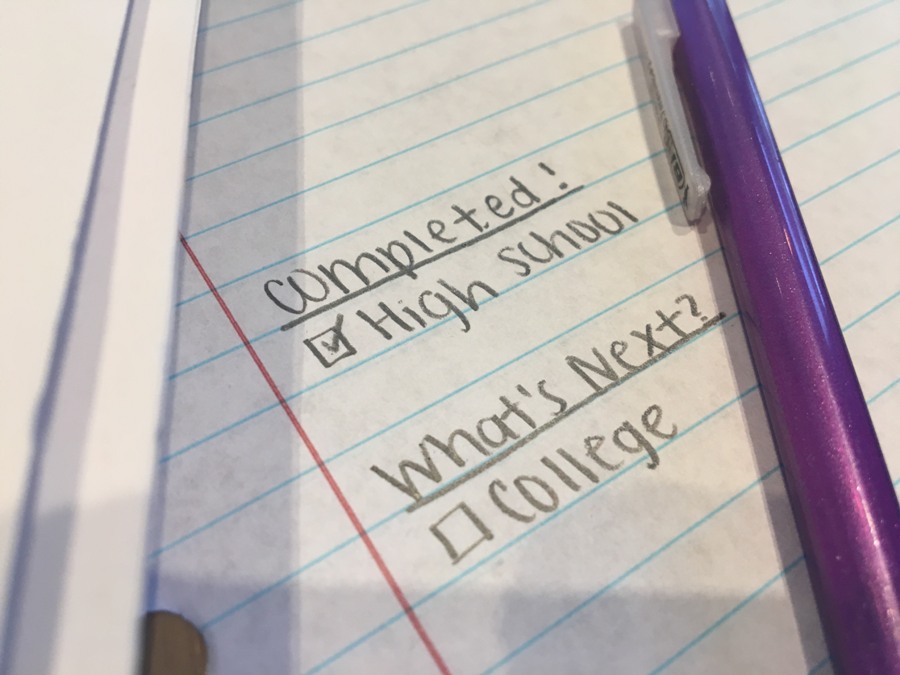 Completed!
High school
What's Next?
College